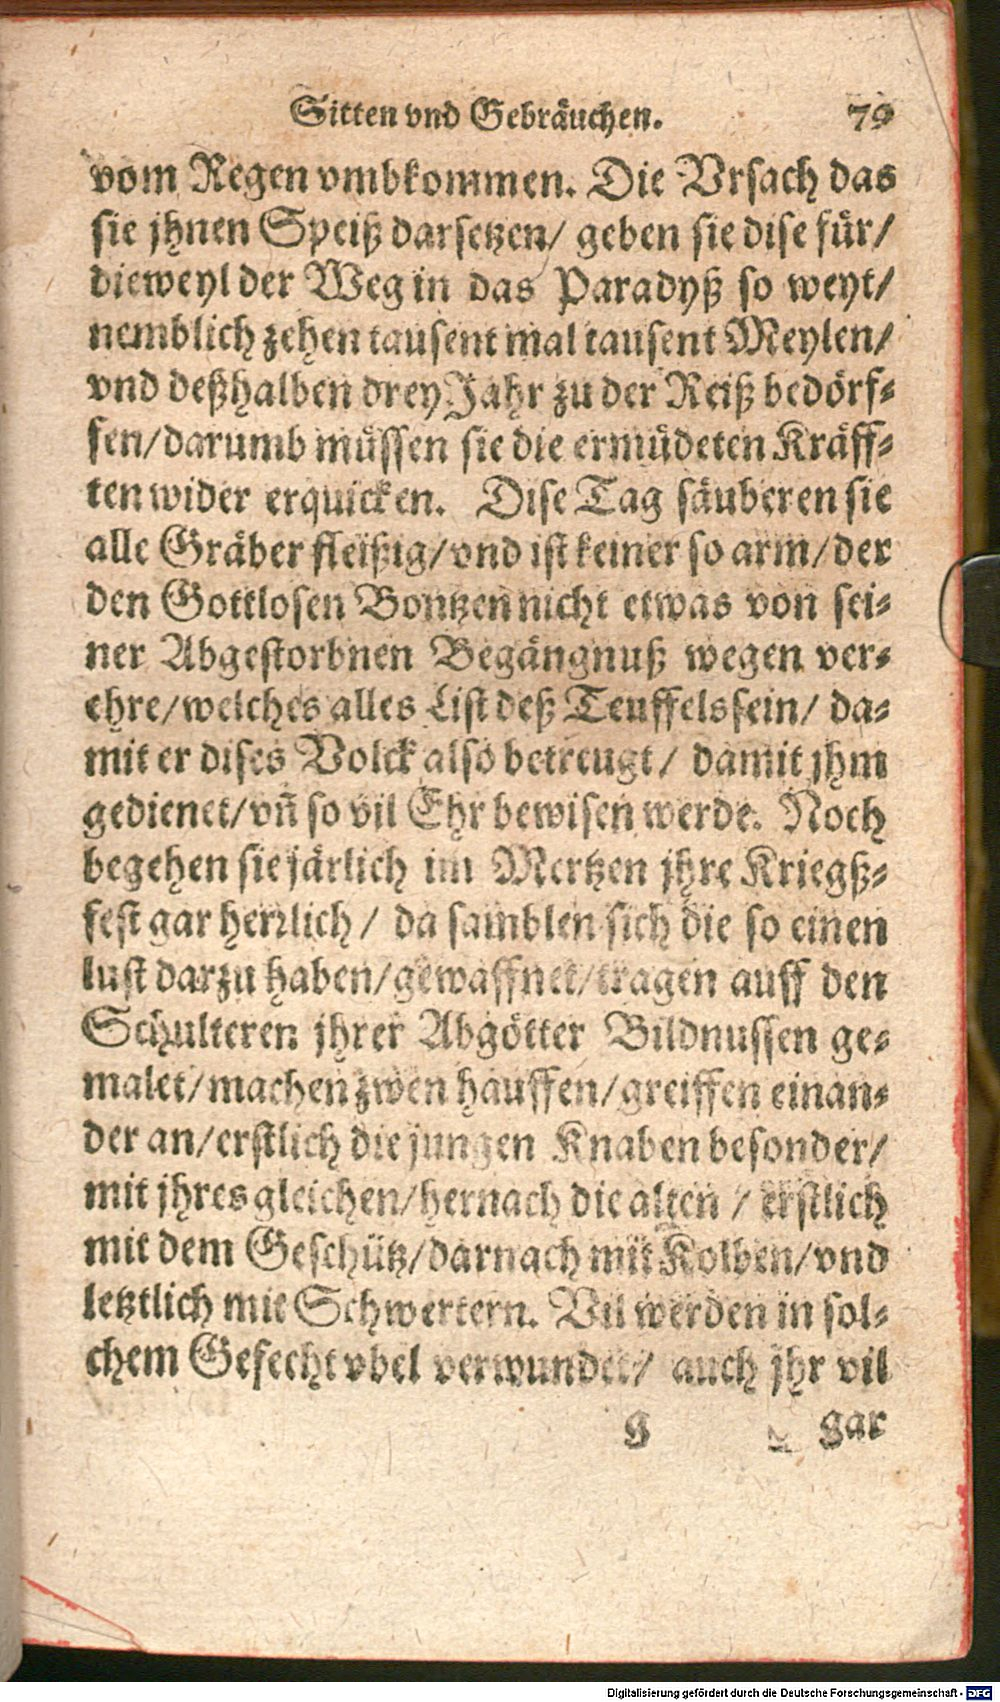 Sitten vnd Gebräuchen. 79
vom Regen vmbkommen. Die Vrsach das
sie jhnen Speiß darsetzen/ geben sie dise für/
dieweyl der Weg in das Paradyß so weyt/
nemblich zehen tausent mal tausent Meylen/
vnd deßhalben drey Jahr zu der Reiß bedörf-
fen/darumb müssen sie die ermüdeten Kräff-
ten wider erquicken. Dise Tag säuberen sie
alle Gräber fleißig/vnd ist keiner so arm/der
den Gottlosen Bontzen nicht etwas von sei-
ner Abgestorbnen Begängnuß wegen ver-
ehre/welches alles List deß Teuffels sein/ da-
mit er dises Volck also betreugt/ damit jhm
gedienet/vñ so vil Ehr bewisen werde. Noch
begehen sie järlich im Mertzen jhre Kriegß-
fest gar herrlich/ da samblen sich die so einen
lust darzu haben/gewaffnet/tragen auff den
Schulteren jhrer Abgötter Bildnussen ge-
malet/machen zwen hauffen/greiffen einan-
der an/erstlich die jungen Knaben besonder/
mit jhres gleichen/hernach die alten/ erstlich
mit dem Geschütz/darnach mit Kolben/vnd
letztlich mit Schwertern. Vil werden in sol-
chem Gefecht vbel verwundet/ auch jhr vil
g gar
Digitalisierung gefördert durch die Deutsche Forschungsgemeinschaft - DFG